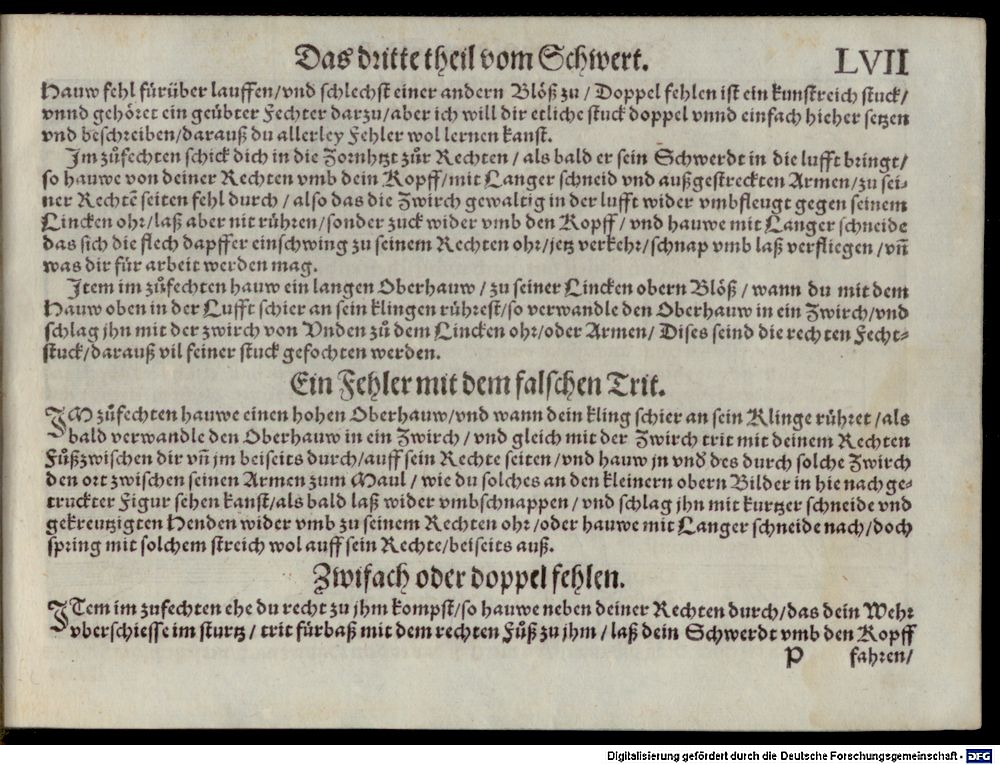 Das dritte theil vom Schwert. LVII
Hauw fehl fürüber lauffen/vnd schlechst einer andern Blöß zu/ Doppel fehlen ist ein kunstreich stuck/
vnnd gehöret ein geübter Fechter darzu/aber ich will dir etliche stuck doppel vnnd einfach hieher setzen
vnd beschreiben/darauß du allerley Fehler wol lernen kanst.
Im zůfechten schick dich in die Zornhtzt zůr Rechten/ als bald er sein Schwerdt in die lufft bringt/
so hauwe von deiner Rechten vmb dein Kopff/mit Langer schneid vnd außgestreckten Armen/zu sei-
ner Rechtē seiten fehl durch/ also das die Zwirch gewaltig in der lufft wider vmbfleugt gegen seinem
Lincken ohr/laß aber nit rühren/sonder zuck wider vmb den Kopff/ vnd hauwe mit Langer schneide
das sich die flech dapffer einschwing zu seinem Rechten ohr/jetz verkehr/schnap vmb laß verfliegen/vn̄
was dir für arbeit werden mag.
Item im zůfechten hauw ein langen Oberhauw/ zu seiner Lincken obern Blöß/ wann du mit dem
Hauw oben in der Lufft schier an sein klingen rührest/so verwandle den Oberhauw in ein Zwirch/vnd
schlag jhn mit der zwirch von Vnden zů dem Lincken ohr/oder Armen/ Dises seind die rechten Fecht-
stuck/darauß vil feiner stuck gefochten werden.
Ein Fehler mit dem falschen Trit.
IM zůfechten hauwe einen hohen Oberhauw/vnd wann dein kling schier an sein Klinge rühret/als
bald verwandle den Oberhauw in ein Zwirch/ vnd gleich mit der Zwirch trit mit deinem Rechten
Fůß zwischen dir vn̄ jm beiseits durch/auff sein Rechte seiten/vnd hauw jn vnd̕ des durch solche Zwirch
den ort zwischen seinen Armen zum Maul/ wie du solches an den kleinern obern Bilder in hie nach ge-
truckter Figur sehen kanst/als bald laß wider vmbschnappen/ vnd schlag jhn mit kurtzer schneide vnd
gekreutzigten Henden wider vmb zu seinem Rechten ohr/oder hauwe mit Langer schneide nach/doch
spring mit solchem streich wol auff sein Rechte/beiseits auß.
Zwifach oder doppel fehlen.
ITem im zufechten ehe du recht zu jhm kompst/so hauwe neben deiner Rechten durch/das dein Wehr
vberschiesse im sturtz/ trit fürbaß mit dem rechten Fůß zu jhm/ laß dein Schwerdt vmb den Kopff
P fahren/
Digitalisierung gefördert durch die Deutsche Forschungsgemeinschaft - DFG